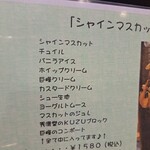 「シャインマスカッ
シャインマスカット
チュイル
バニラアイス
ホイップクリーム
巨峰クリーム
カスタードクリーム
シュー生地
ヨーグルトムース
マスカットのジュレ
KUZUブロック
巨峰のコンポート
全て中に入ってますよ!
¥1580(税込)